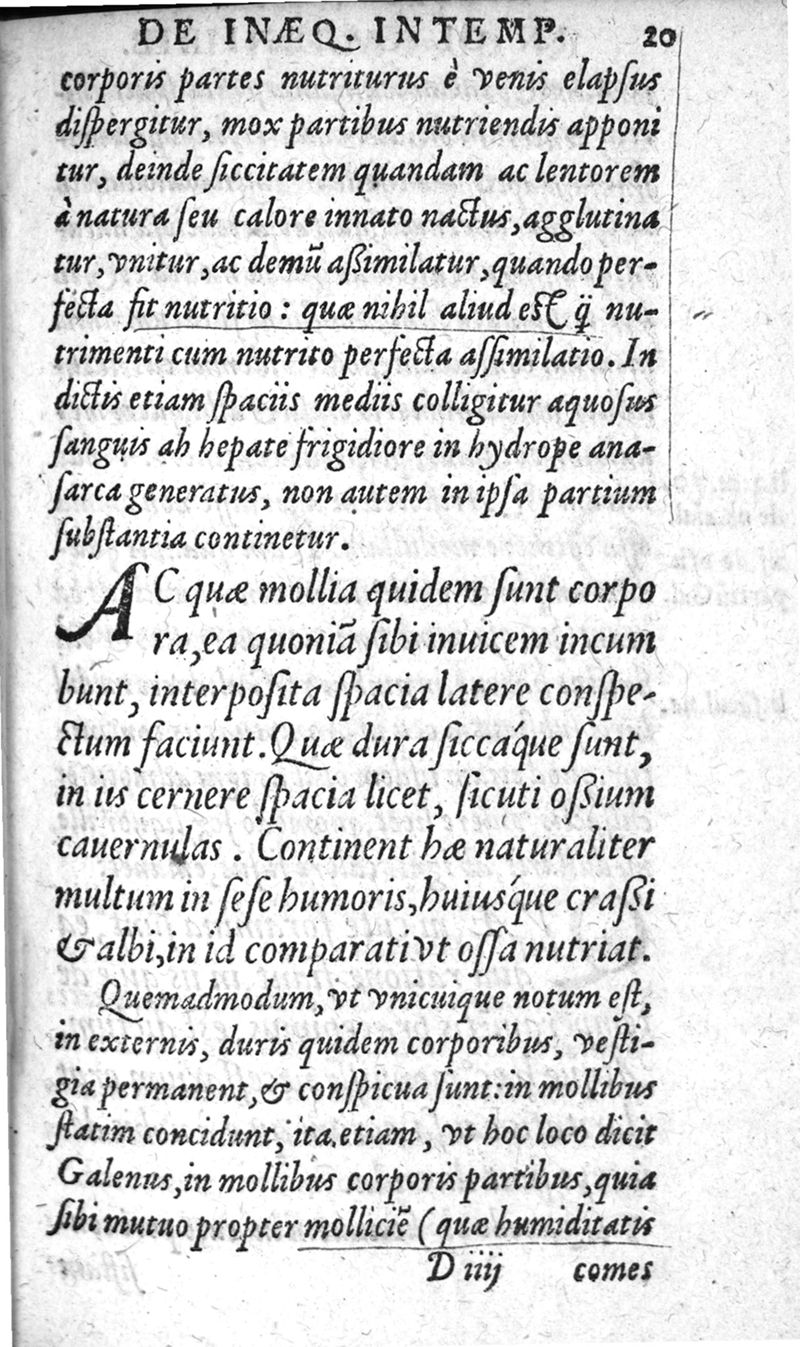 DE INÆQ. INTEMP. 20
corporis partes nutriturus è venis elapſus
diſpergitur, mox partibus nutriendis apponi
tur, deinde ſiccitatem quandam ac lentorem
à natura ſeu calore innato nactus, agglutina
tur, vnitur, ac demũ aßimilatur, quando per-
fecta fit nutritio: quæ nihil aliud est q̃ nu-
trimenti cum nutrito perfecta aſſimilatio. In
dictis etiam ſpaciis mediis colligitur aquoſus
ſanguis ab hepate frigidiore in hydrope ana-
ſarca generatus, non autem in ipſa partium
ſubſtantia continetur.
AC quæ mollia quidem ſunt corpo
ra, ea quoniã ſibi inuicem incum
bunt, interpoſita ſpacia latere conſpe-
ctum faciunt. Quæ dura ſiccáque ſunt,
in iis cernere ſpacia licet, ſicuti oßium
cauernulas. Continent hæ naturaliter
multum in ſeſe humoris, huiúsque craßi
& albi, in id comparati vt oſſa nutriat.
Quemadmodum, vt vnicuique notum eſt,
in externis, duris quidem corporibus, veſti-
gia permanent, & conſpicua ſunt: in mollibus
ſtatim concidunt, ita etiam, vt hoc loco dicit
Galenus, in mollibus corporis partibus, quia
ſibi mutuo propter molliciẽ (quæ humiditatis
D iiij comes